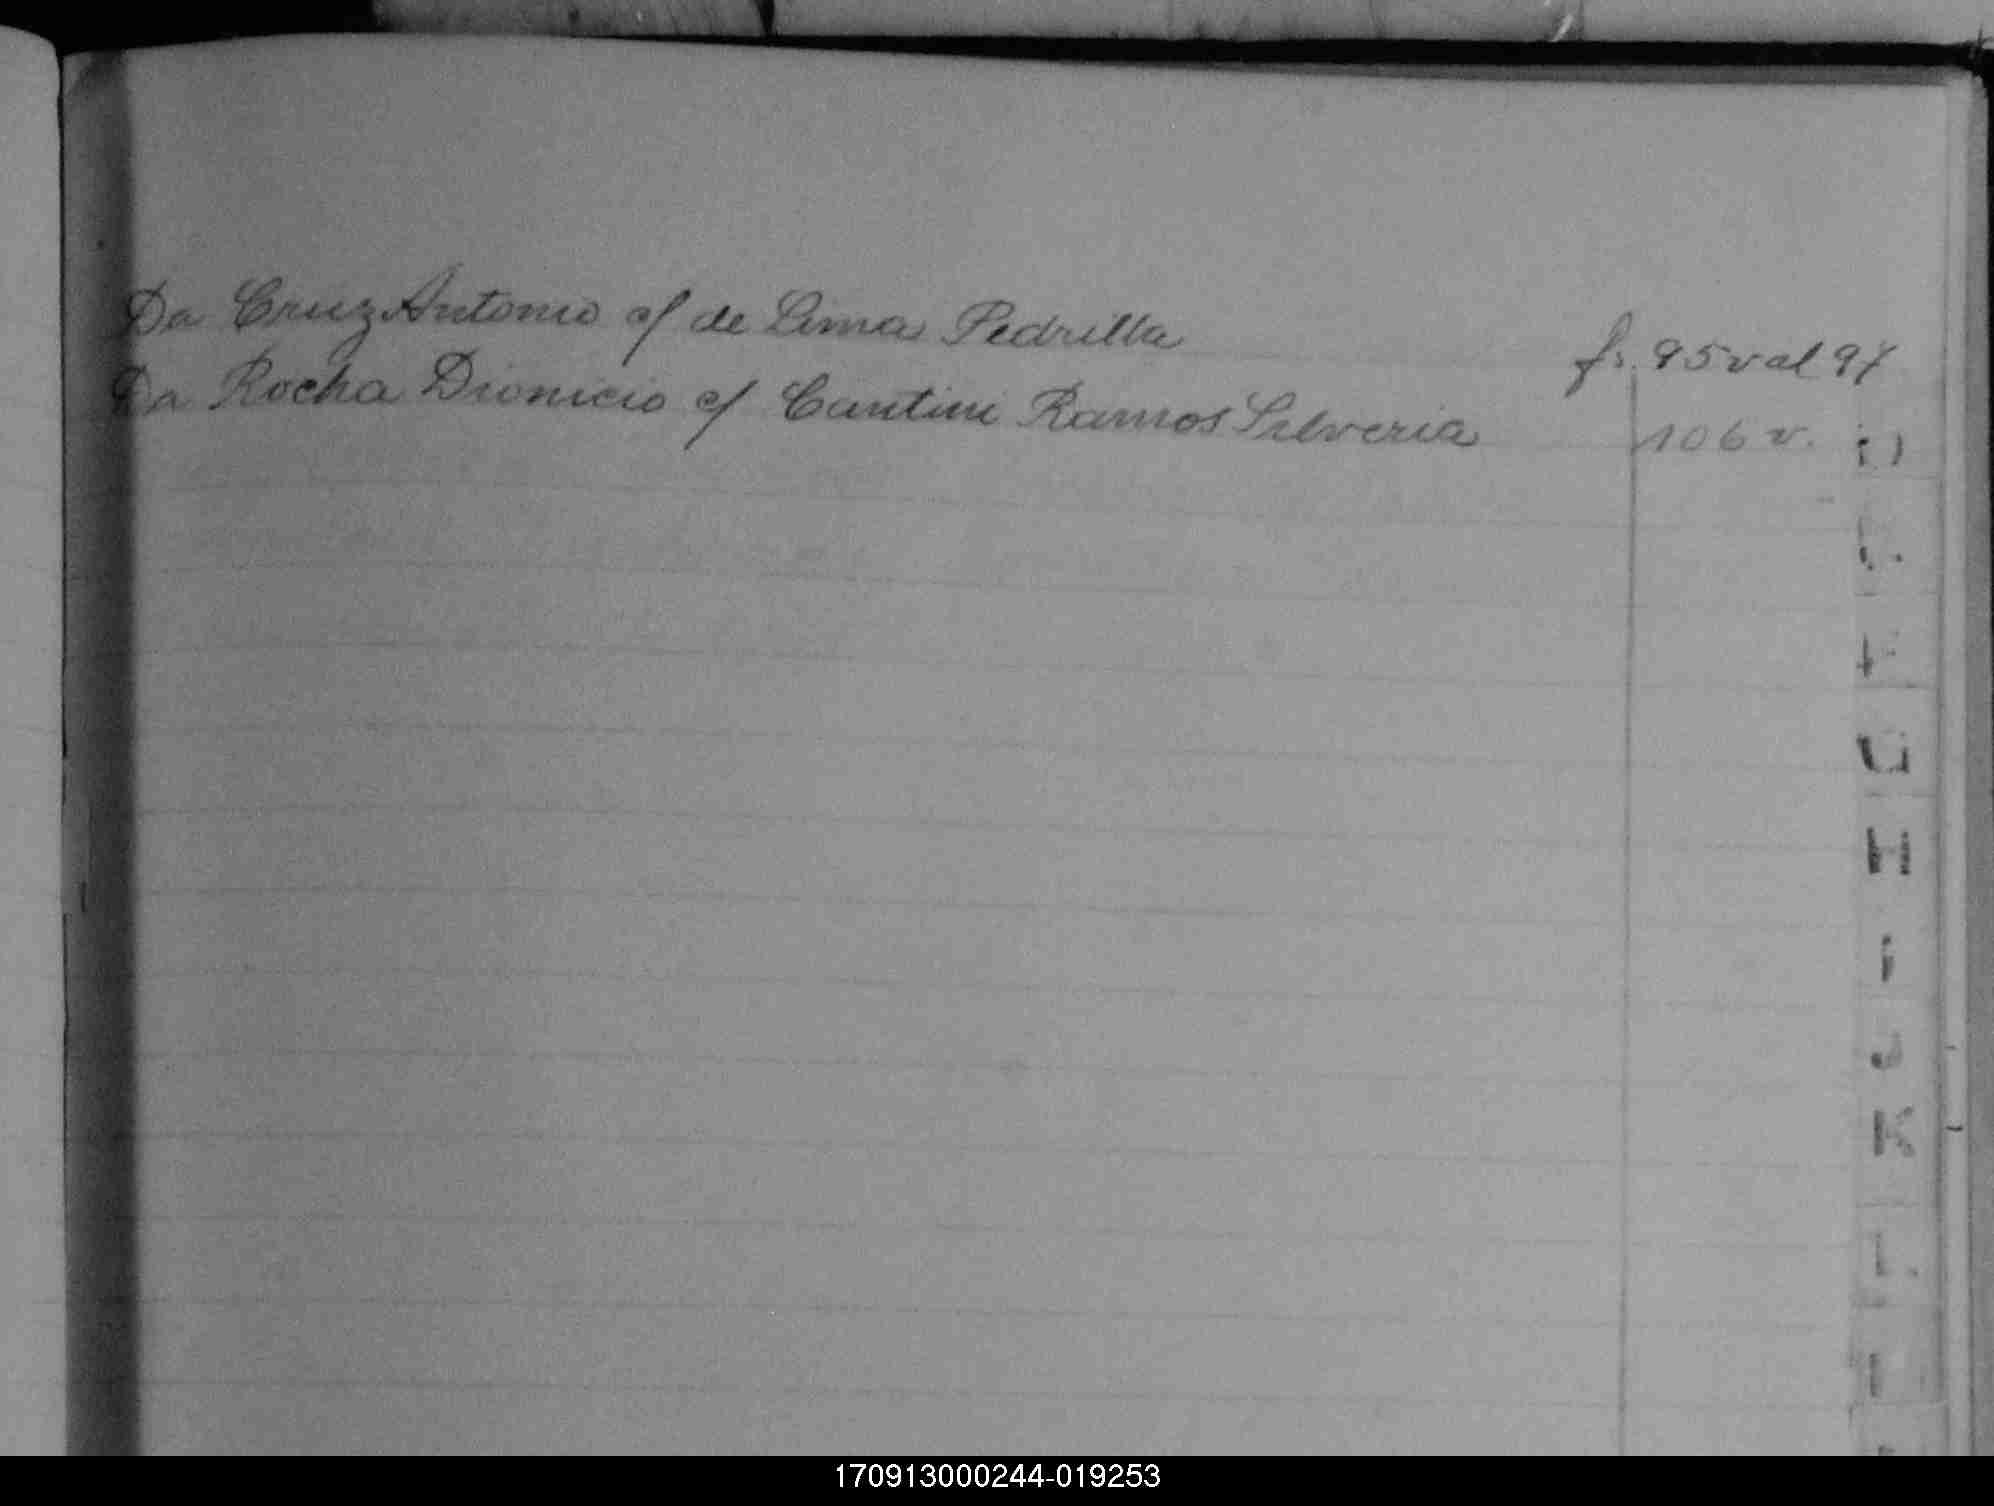 Da Cruz Antonio c/ de Lima Pedrilla f. 95 v al 97
Da Rocha Dionicio c/ Cantini Ramos Silveria 106 v.
H
I
J
K
L
170913000244-019253